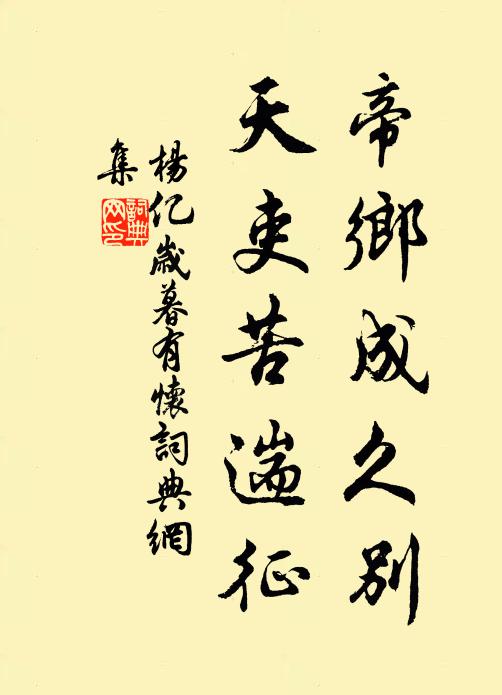 帝鄉成久別
天吏苦遄征
楊亿歲暮有懷詞典網
集
詞典
网印